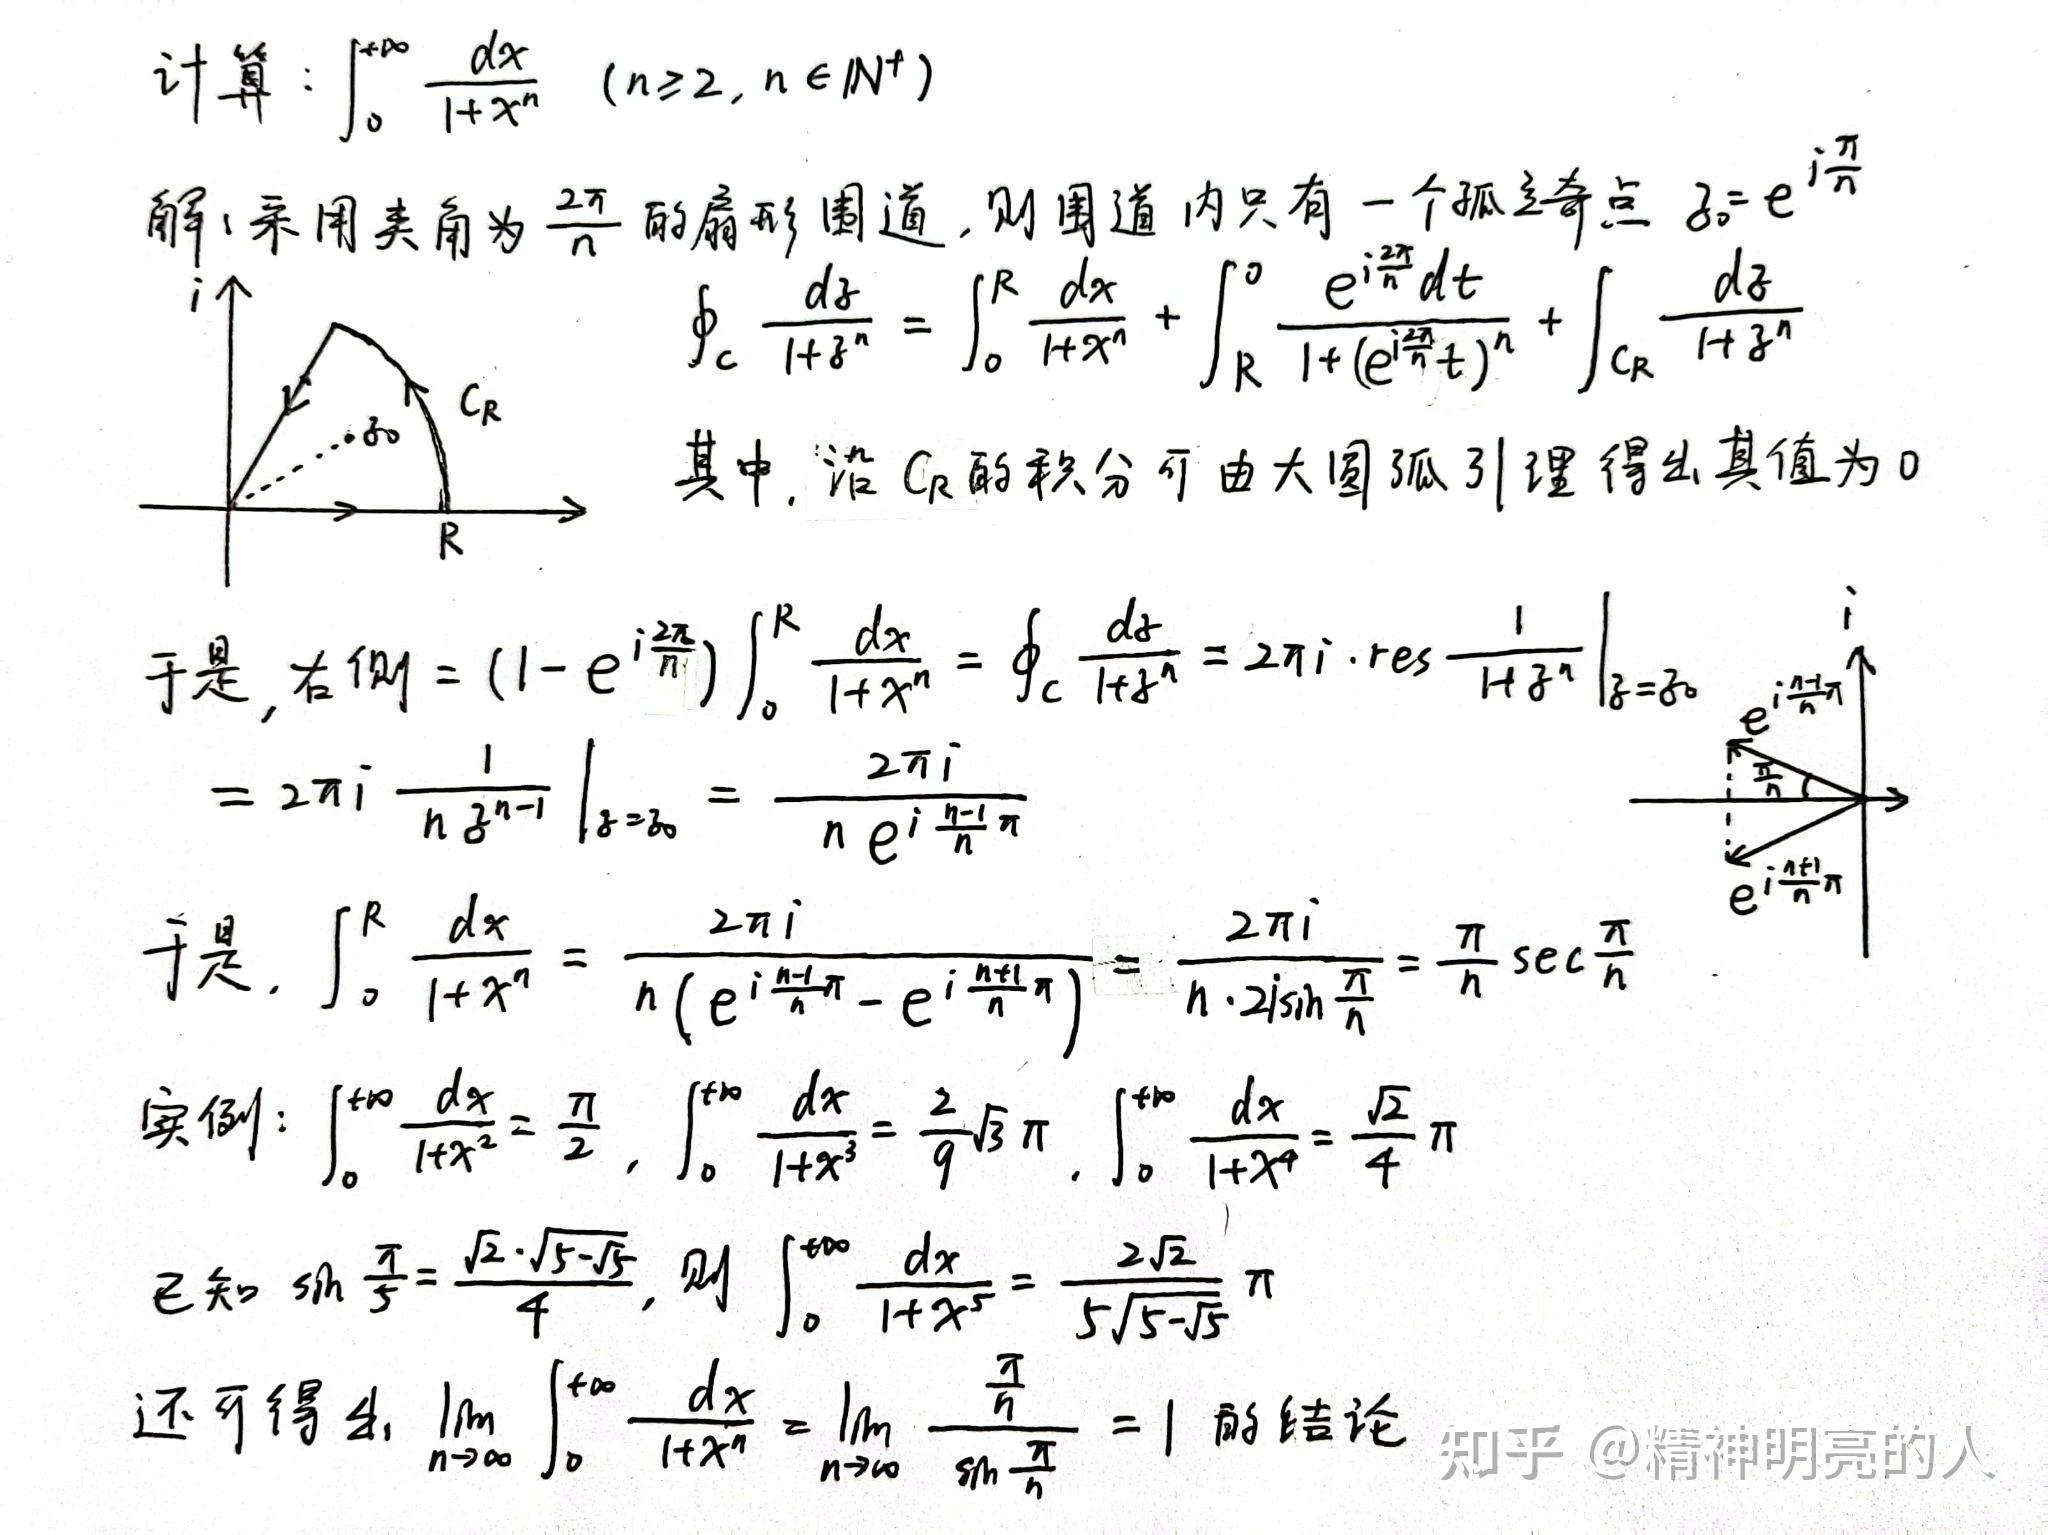 计算: ∫₀^{+∞} dx/(1+xⁿ) (n≥2, n∈ℕ⁺)
解: 采用夹角为 2π/n 的扇形围道, 则围道内只有一个孤立奇点 z₀=e^{iπ/n}
i
∮_C dz/(1+zⁿ) = ∫₀^R dx/(1+xⁿ) + ∫_R^0 e^{i2π/n}dt/(1+(e^{i2π/n}t)ⁿ) + ∫_{C_R} dz/(1+zⁿ)
C_R
z₀
R
其中, 沿 C_R 的积分可由大圆弧引理得出其值为0
于是, 右侧 = (1-e^{i2π/n}) ∫₀^R dx/(1+xⁿ) = ∮_C dz/(1+zⁿ) = 2πi·res 1/(1+zⁿ) |_{z=z₀}
i
e^{i(n-1)/n π}
π/n
e^{i(n+1)/n π}
= 2πi 1/(n z^{n-1}) |_{z=z₀} = 2πi/(n e^{i(n-1)/n π})
于是, ∫₀^R dx/(1+xⁿ) = 2πi/(n(e^{i(n-1)/n π} - e^{i(n+1)/n π})) = 2πi/(n·2i sin π/n) = π/n sec π/n
实例: ∫₀^{+∞} dx/(1+x²) = π/2, ∫₀^{+∞} dx/(1+x³) = 2/9 √3 π, ∫₀^{+∞} dx/(1+x⁴) = √2/4 π
已知 sin π/5 = √2·√(5-√5)/4, 则 ∫₀^{+∞} dx/(1+x⁵) = 2√2/(5√(5-√5)) π
还可得出 lim_{n→∞} ∫₀^{+∞} dx/(1+xⁿ) = lim_{n→∞} (π/n)/(sin π/n) = 1 的结论
知乎 @精神明亮的人